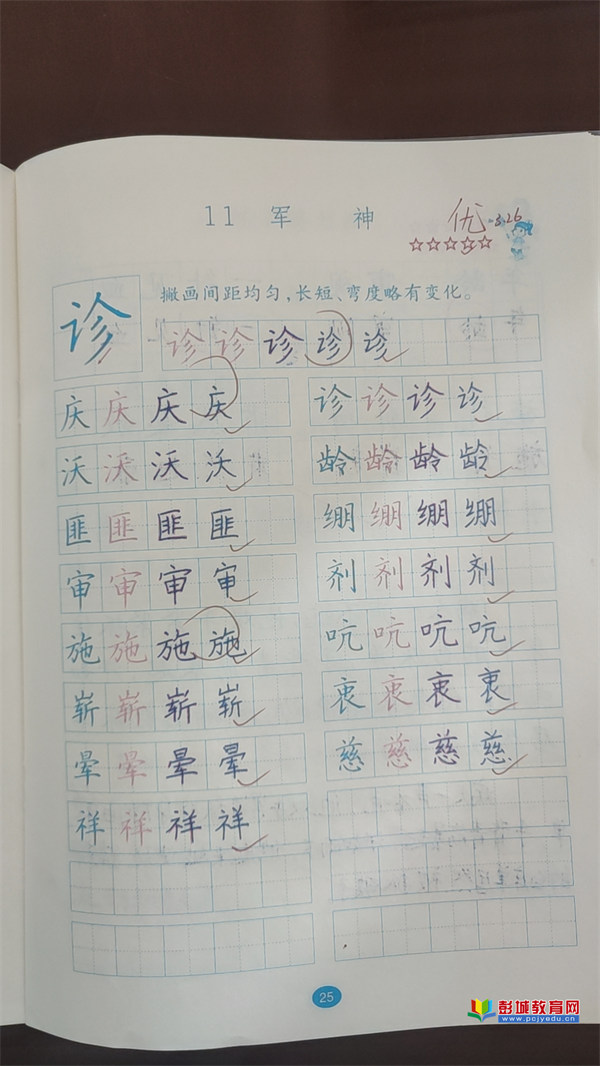 11 军 神
优 5.26
诊 撇画间距均匀,长短、弯度略有变化。
诊 诊 诊 诊 诊
庆 庆 庆 庆 诊 诊 诊 诊
沃 沃 沃 沃 龄 龄 龄 龄
匪 匪 匪 匪 绷 绷 绷 绷
审 审 审 审 剂 剂 剂 剂
施 施 施 施 吭 吭 吭 吭
崭 崭 崭 崭 衷 衷 衷 衷
晕 晕 晕 晕 慈 慈 慈 慈
祥 祥 祥 祥
25
彭城教育网
www.pcjyedu.cn